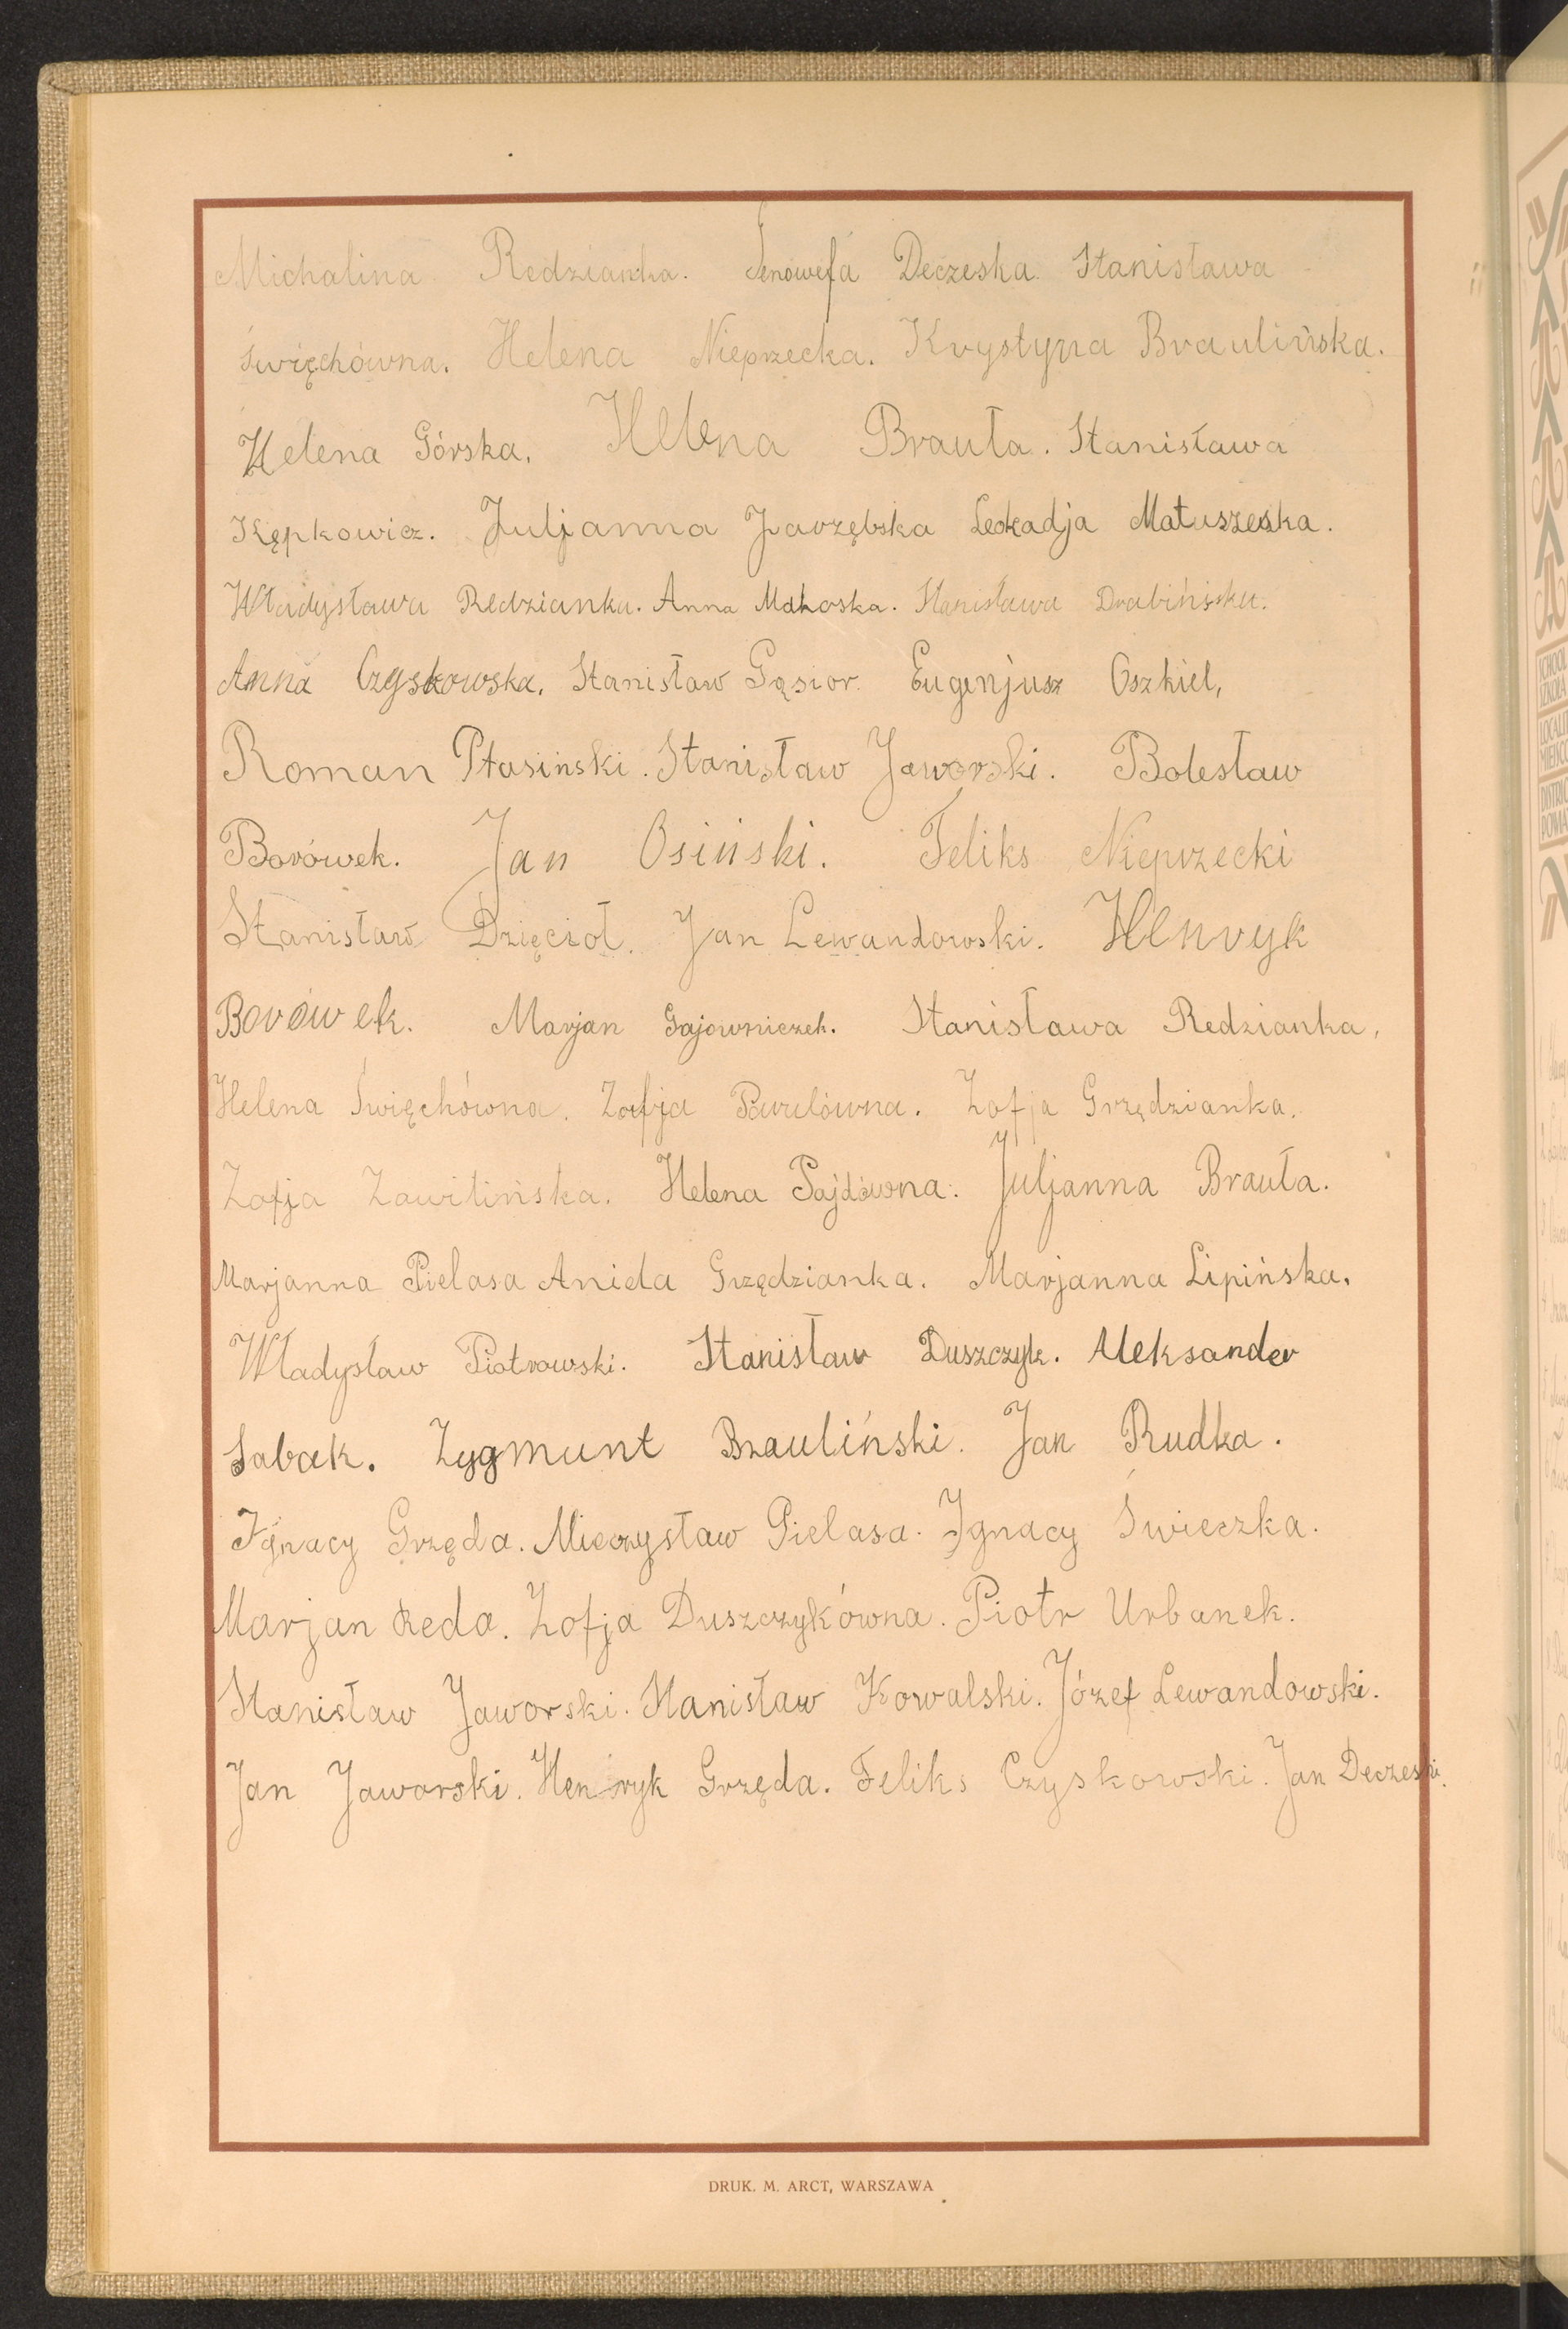 Michalina Redzianka. Genowefa Deczeska. Stanisława
Święchówna. Helena Nieprzecka. Krystyna Braulińska.
Helena Górska. Helena Brauła. Stanisława
Kępkowicz. Juljanna Jarzębska Leokadja Matuszeska.
Władysława Redzianka. Anna Makoska. Stanisława Drabińska.
Anna Czyskowska. Stanisław Gąsior. Eugenjusz Oszkiel,
Roman Ptasiński. Stanisław Jaworski. Bolesław
Borówek. Jan Osiński. Feliks Nieprzecki
Stanisław Dzięcioł. Jan Lewandowski. Henryk
Borówek. Marjan Gajowniczek. Stanisława Redzianka,
Helena Święchówna. Zofja Pawulówna. Zofja Grzędzianka.
Zofja Zawilińska. Helena Pajdówna. Juljanna Brauła.
Marjanna Pielasa Aniela Grzędzianka. Marjanna Lipińska.
Władysław Piotrowski. Stanisław Duszczyk. Aleksander
Sabak. Zygmunt Brauliński. Jan Rudka.
Ignacy Grzęda. Mieczysław Pielasa. Ignacy Świeczka.
Marjan Reda. Zofja Duszczykówna. Piotr Urbanek.
Stanisław Jaworski. Stanisław Kowalski. Józef Lewandowski.
Jan Jaworski. Henryk Grzęda. Feliks Czyskowski. Jan Deczeski.
DRUK. M. ARCT, WARSZAWA